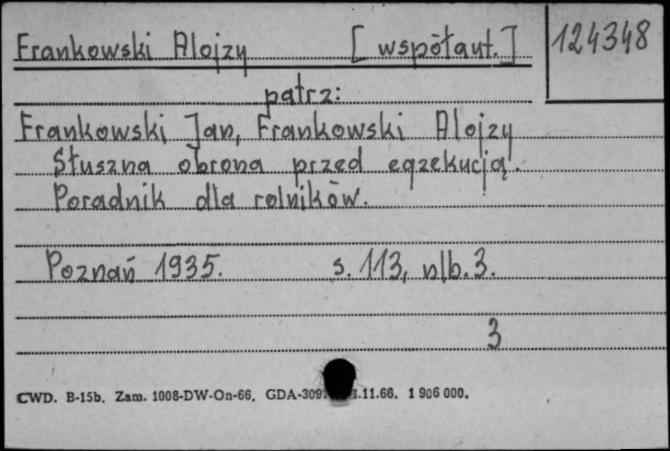 Frankowski Alojzy [współaut.] 124348
patrz:
Frankowski Jan, Frankowski Alojzy
Słuszna obrona przed egzekucją.
Poradnik dla rolników.
Poznań 1935. s. 113, nlb. 3.
3
CWD. B-15b. Zam. 1008-DW-On-66. GDA-309 .11.66. 1 906 000.